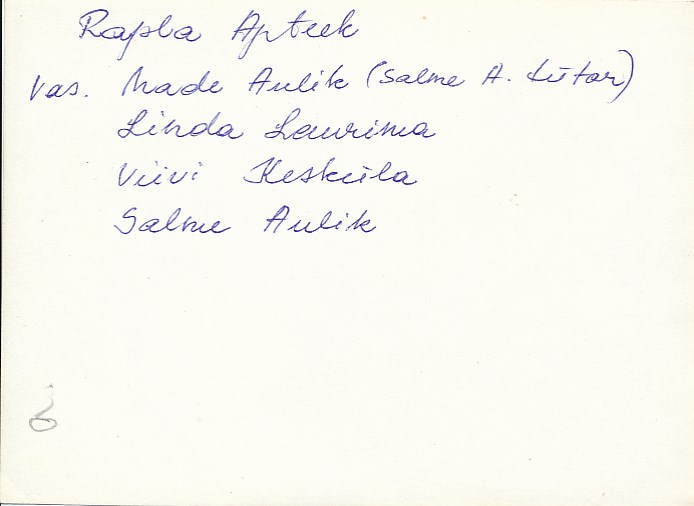 Rapla Apteek
Vas. Made Aulik (Salme A. tütar)
Linda Laurima
Viivi Kesküla
Salme Aulik